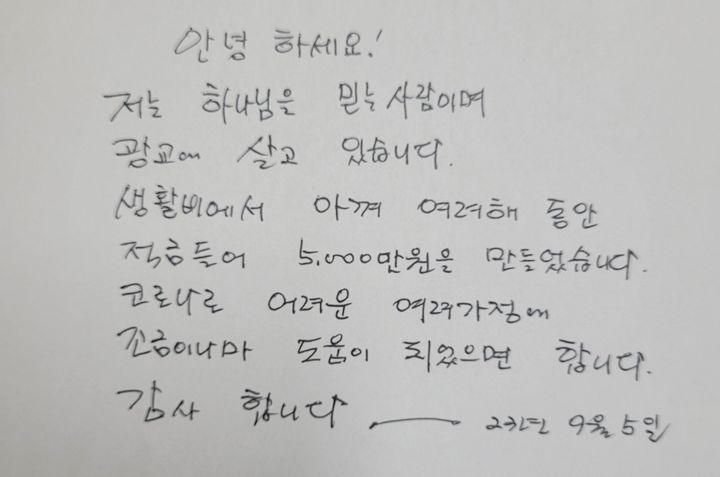 안녕 하세요!
저는 하나님을 믿는 사람이며
광교에 살고 있습니다.
생활비에서 아껴 여러해 동안
적금들어 5,000만원을 만들었습니다.
코로나로 어려운 여러가정에
조금이나마 도움이 되었으면 합니다.
감사 합니다 9월 5일